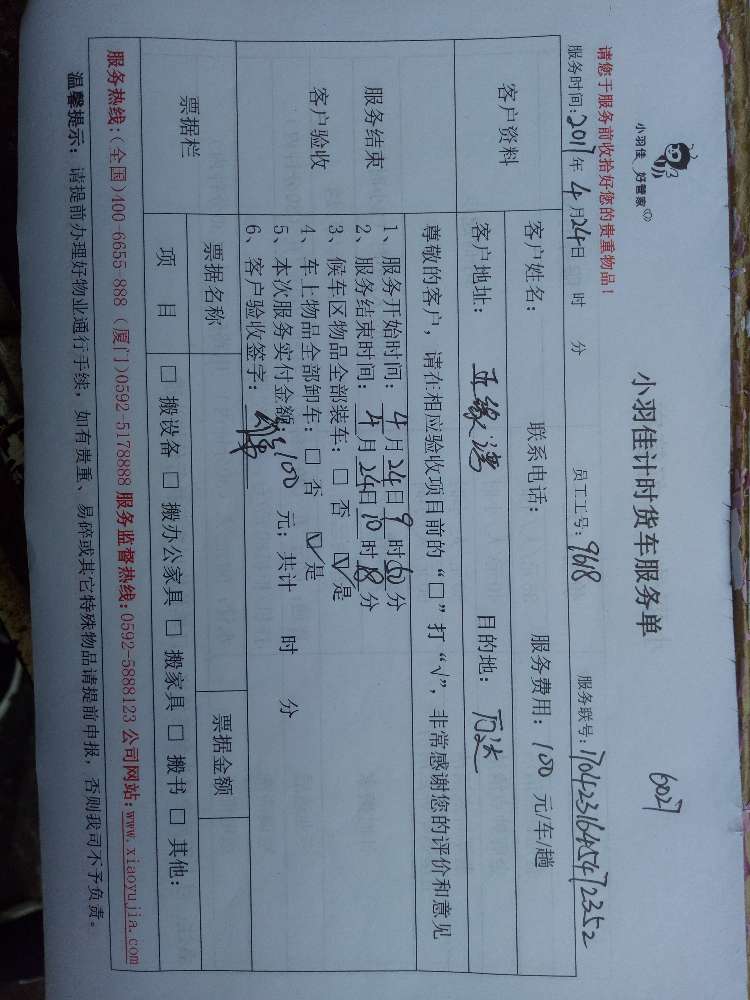 小羽佳 好管家
小羽佳计时货车服务单
6027
请您于服务前收拾好您的贵重物品！
服务时间：2017年 4月24日 时 分 员工工号：9618 服务联号：1704231645472352
客户资料
客户姓名： 联系电话： 服务费用：100 元/车/趟
客户地址： 目的地：
服务结束
客户验收
尊敬的客户，请在相应验收项目前的“□”打“√”，非常感谢您的评价和意见
1、服务开始时间：4月24日9时 分
2、服务结束时间：4月24日10时18分
3、候车区物品全部装车：□ 否 ☑是
4、车上物品全部卸车：□ 否 ☑是
5、本次服务实付金额：100 元；共计 时 分
6、客户验收签字：
票据栏
票据名称 票据金额
项 目 □ 搬设备 □ 搬办公家具 □ 搬家具 □ 搬书 □ 其他：
服务热线：(全国)400-6655-888 (厦门)0592-5178888 服务监督热线：0592-5888123 公司网站：www.xiaoyujia.com
温馨提示：请提前办理好物业通行手续，如有贵重、易碎或其它特殊物品请提前申报，否则我司不予负责。